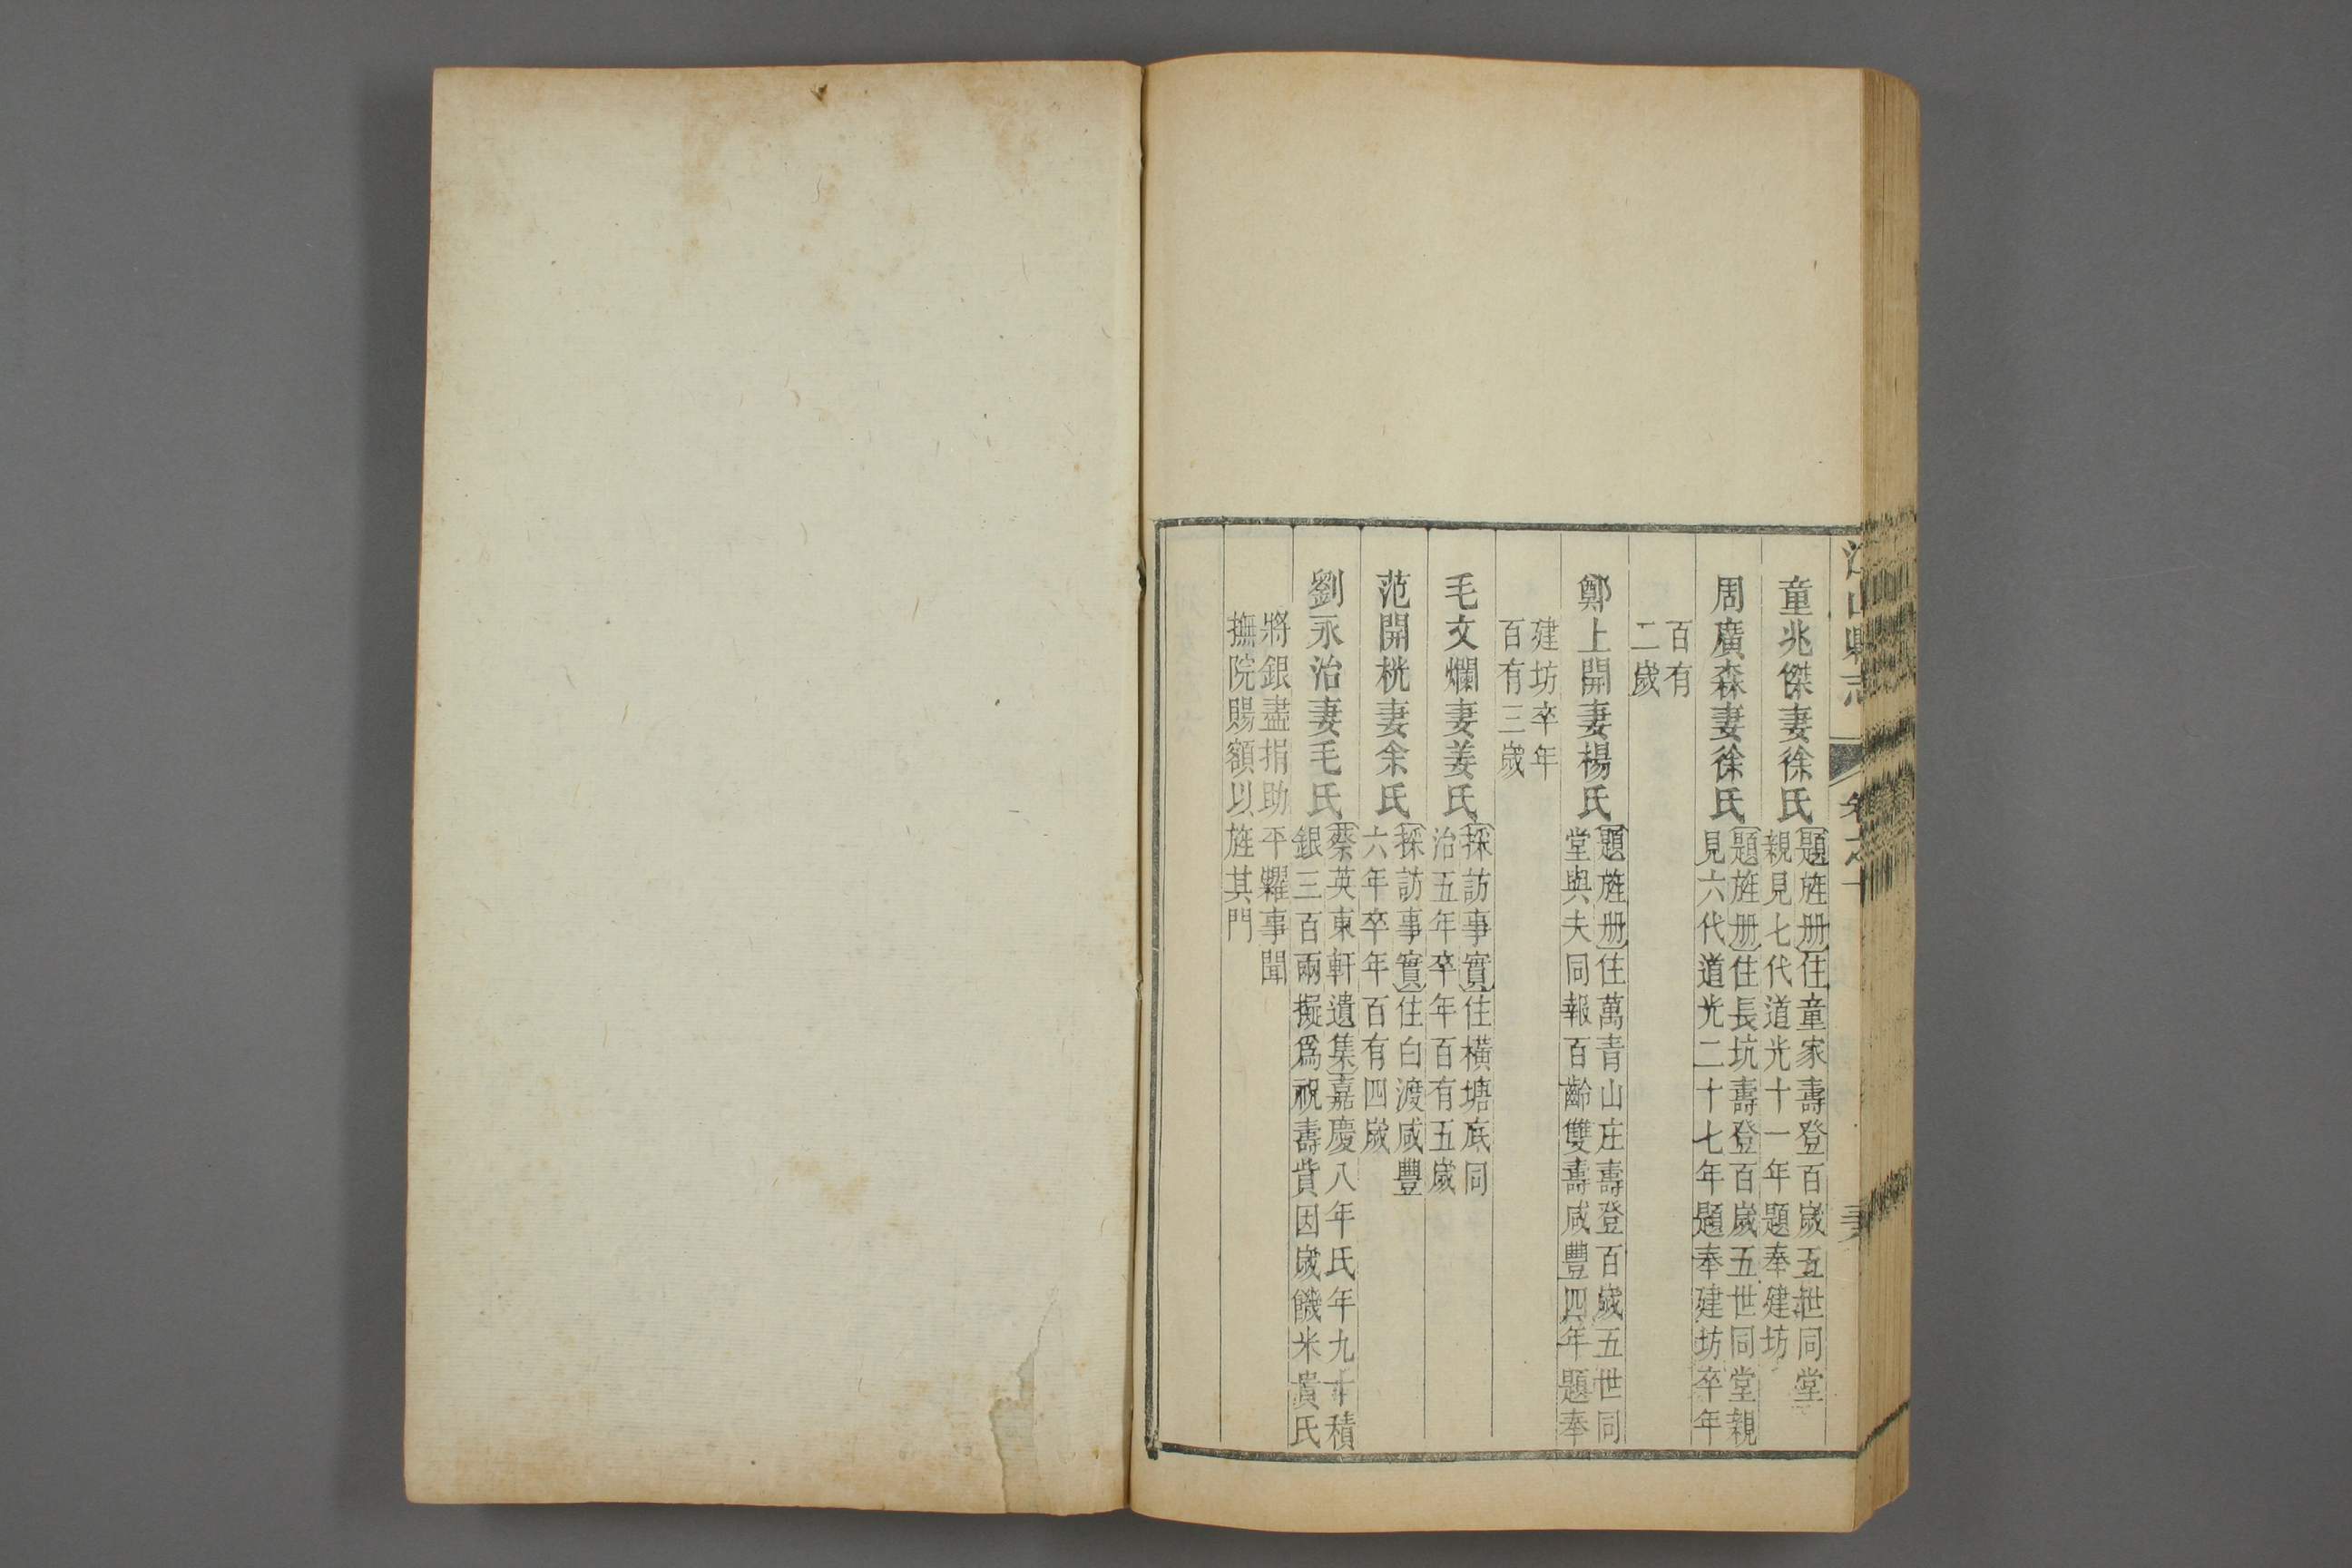 童兆傑妻徐氏
題旌册住童家壽登百歲五世同堂
親見七代道光十一年題奉建坊
周廣森妻徐氏
題旌册住長坑壽登百歲五世同堂親
見六代道光二十七年題奉建坊卒年
百有
二歲
鄭上開妻楊氏
題旌册住萬青山庄壽登百歲五世同
堂與夫同報百齡雙壽咸豐四年題奉
建坊卒年
百有三歲
毛文爛妻姜氏
採訪事實住橫塘底同
治五年卒年百有五歲
范開桄妻余氏
採訪事實住白渡咸豐
六年卒年百有四歲
劉永治妻毛氏
蔡英東軒遺集嘉慶八年氏年九十積
銀三百兩擬爲祝壽貲因歲饑米貴氏
將銀盡捐助平糶事聞
撫院賜額以旌其門